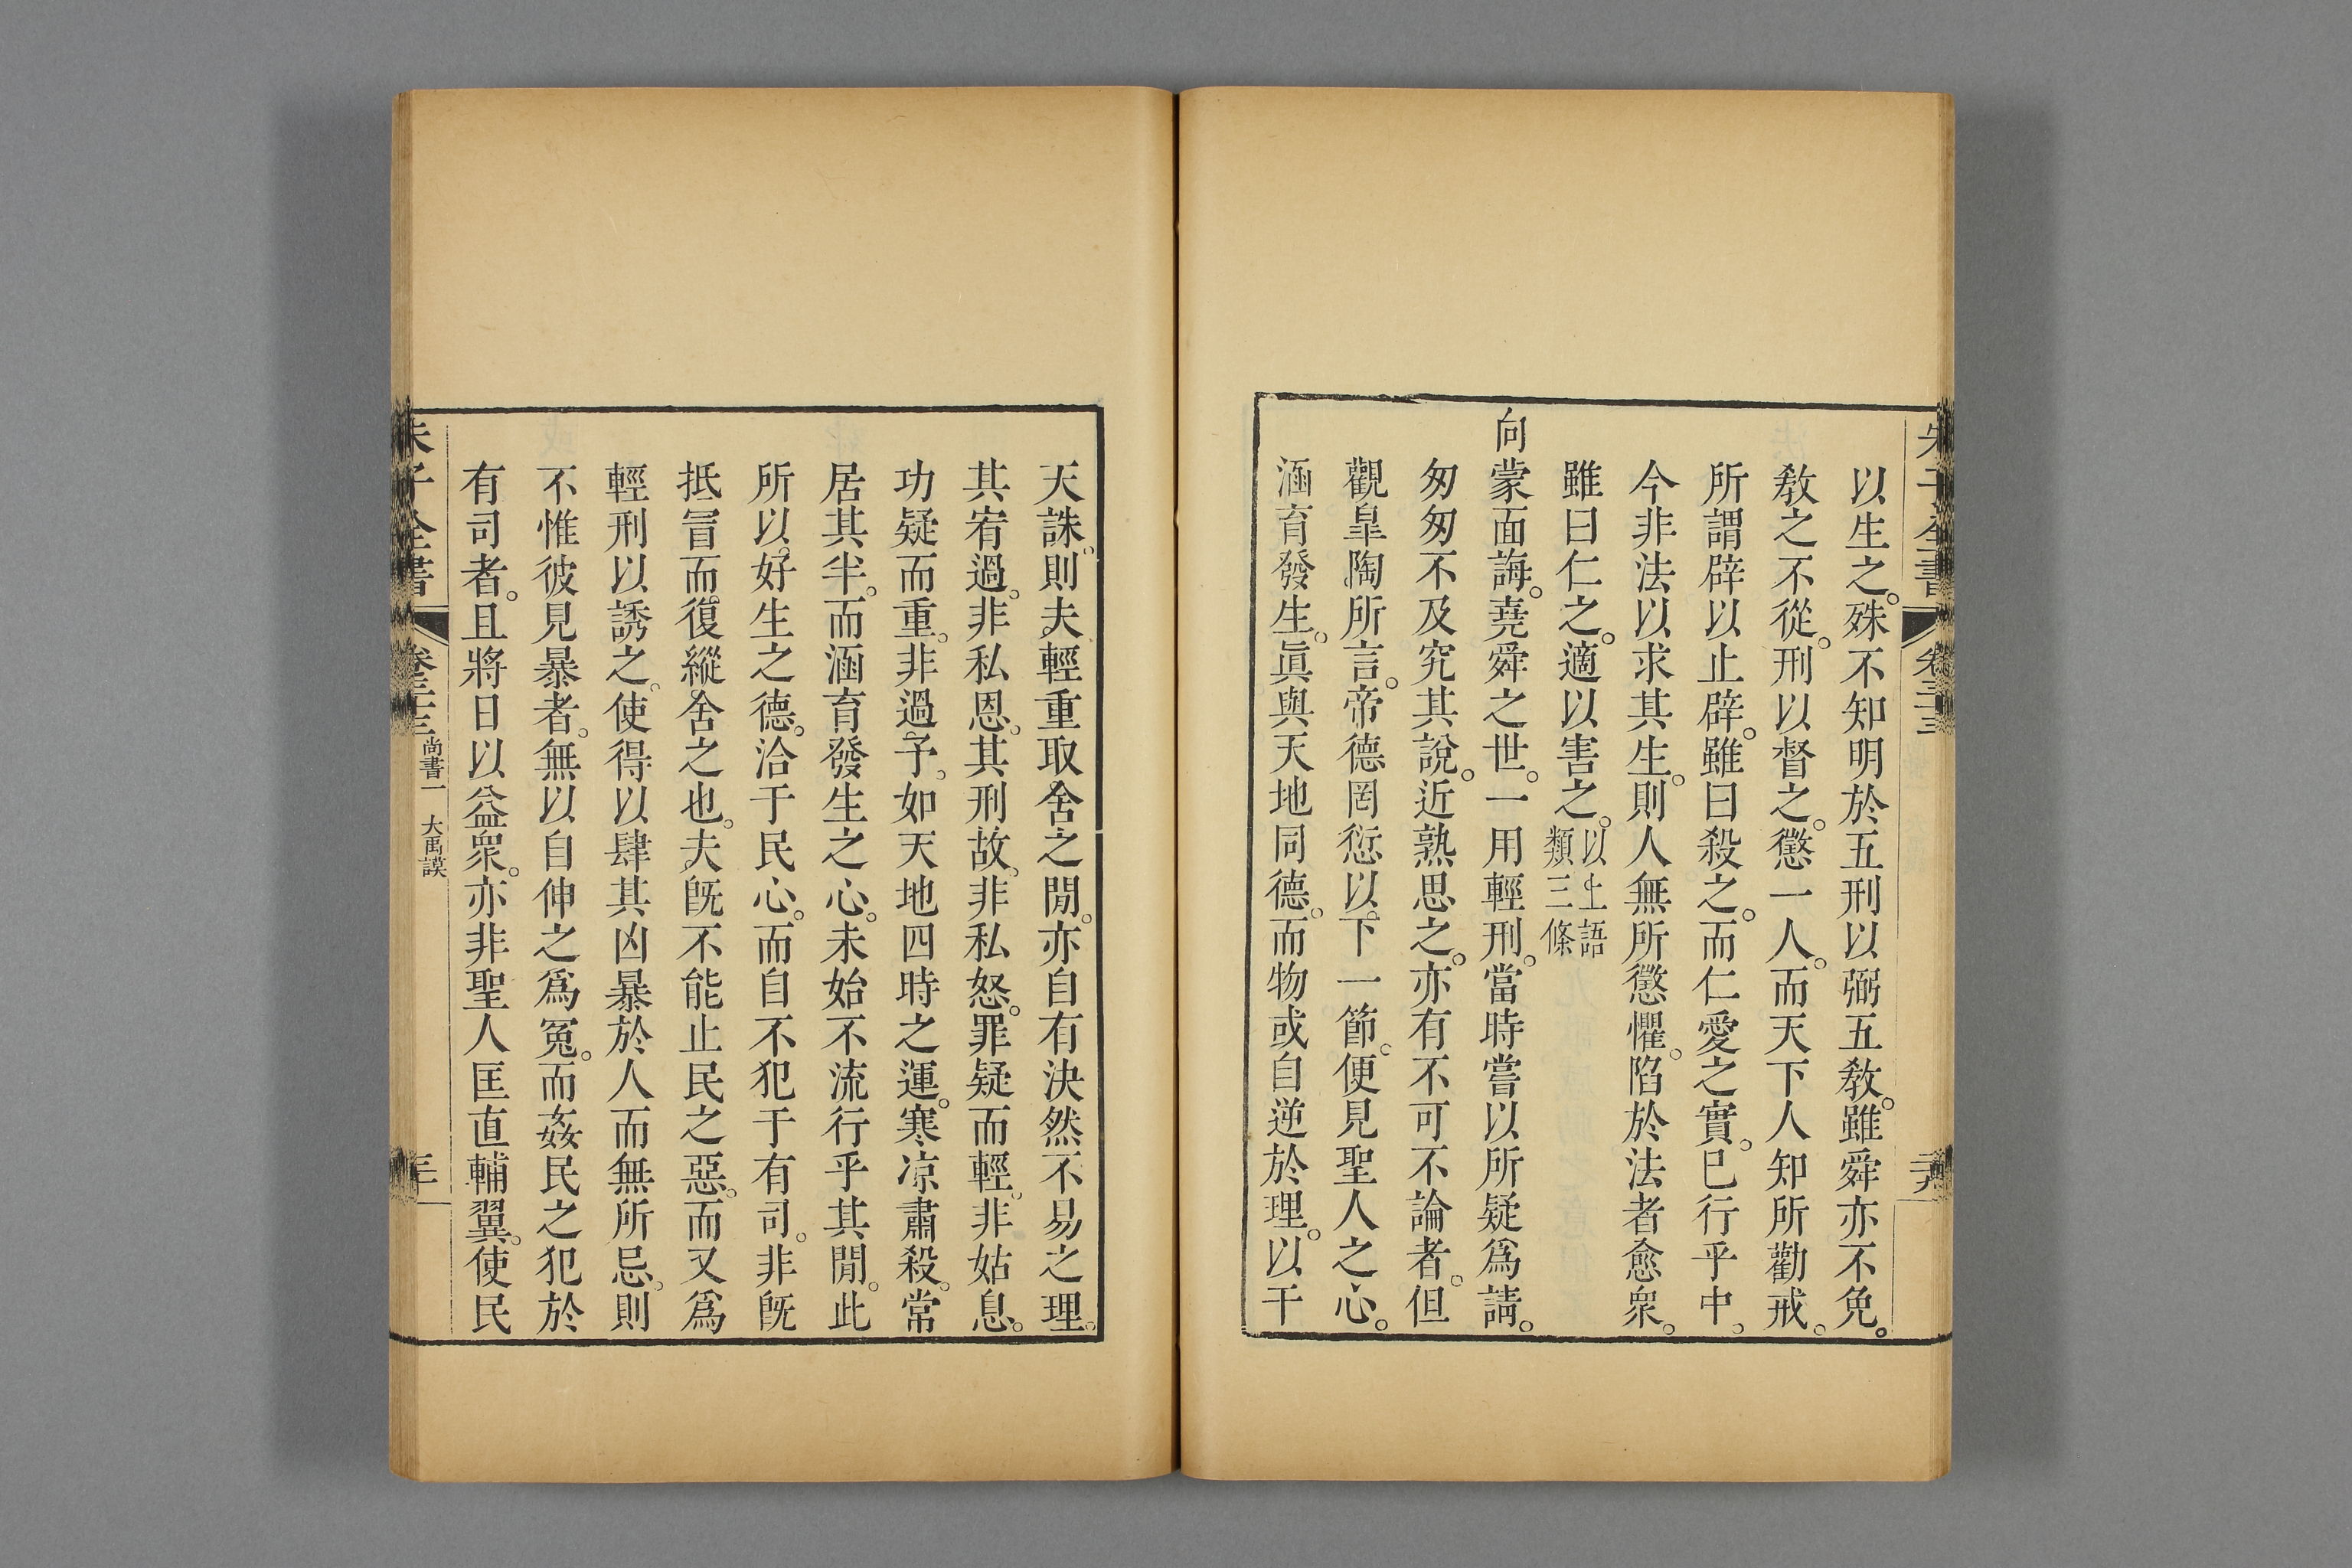 朱子全書 卷三十三
以生之。殊不知明於五刑以弼五敎。雖舜亦不免。
敎之不從。刑以督之。懲一人。而天下人知所勸戒。
所謂辟以止辟。雖曰殺之。而仁愛之實。已行乎中。
今非法以求其生。則人無所懲懼。陷於法者愈衆。
雖曰仁之。適以害之。以上語類三條
向蒙面誨。堯舜之世。一用輕刑。當時嘗以所疑爲請。
匆匆不及究其說。近熟思之。亦有不可不論者。但
觀皐陶所言。帝德罔愆以下一節。便見聖人之心。
涵育發生。眞與天地同德。而物或自逆於理。以干
天誅。則夫輕重取舍之閒。亦自有決然不易之理。
其宥過。非私恩。其刑故。非私怒。罪疑而輕。非姑息。
功疑而重。非過予。如天地四時之運。寒凉肅殺。常
居其半。而涵育發生之心。未始不流行乎其閒。此
所以好生之德。洽于民心。而自不犯于有司。非旣
抵冒而復縱舍之也。夫旣不能止民之惡。而又爲
輕刑以誘之。使得以肆其凶暴於人而無所忌。則
不惟彼見暴者。無以自伸之爲冤。而姦民之犯於
有司者。且將日以益衆。亦非聖人匡直輔翼。使民
朱子全書 卷三十三 尚書一 大禹謨 三十